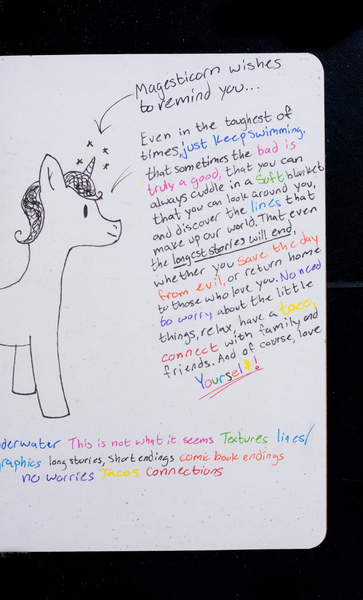 Magesticorn wishes
to remind you...
Even in the toughest of
times, just keep swimming.
that sometimes the bad is
truly a good, that you can
always cuddle in a soft blanket
that you can look around you,
and discover the lines that
make up our world. That even
the longest stories will end,
whether you save the day
from evil, or return home
to those who love you. No need
to worry about the little
things, relax, have a taco,
connect with family and
friends. And of course, love
Yourself!
derwater This is not what it seems Textures lines/
graphics long stories, short endings comic book endings
no worries Tacos Connections